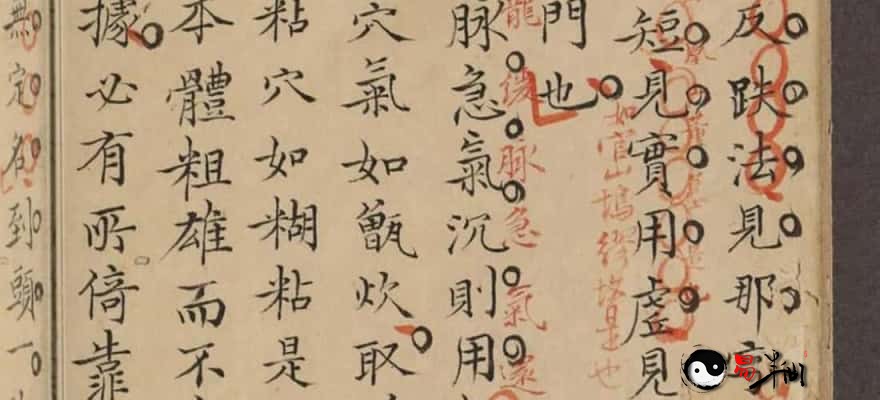 反跌法見那
短見實用虛見
如官山是也
門也
龍緩脉急氣
脉急氣沉則用
穴氣如甑炊取
粘穴如糊粘是
本體粗雄而不
據必有所倚靠
無定到頭一